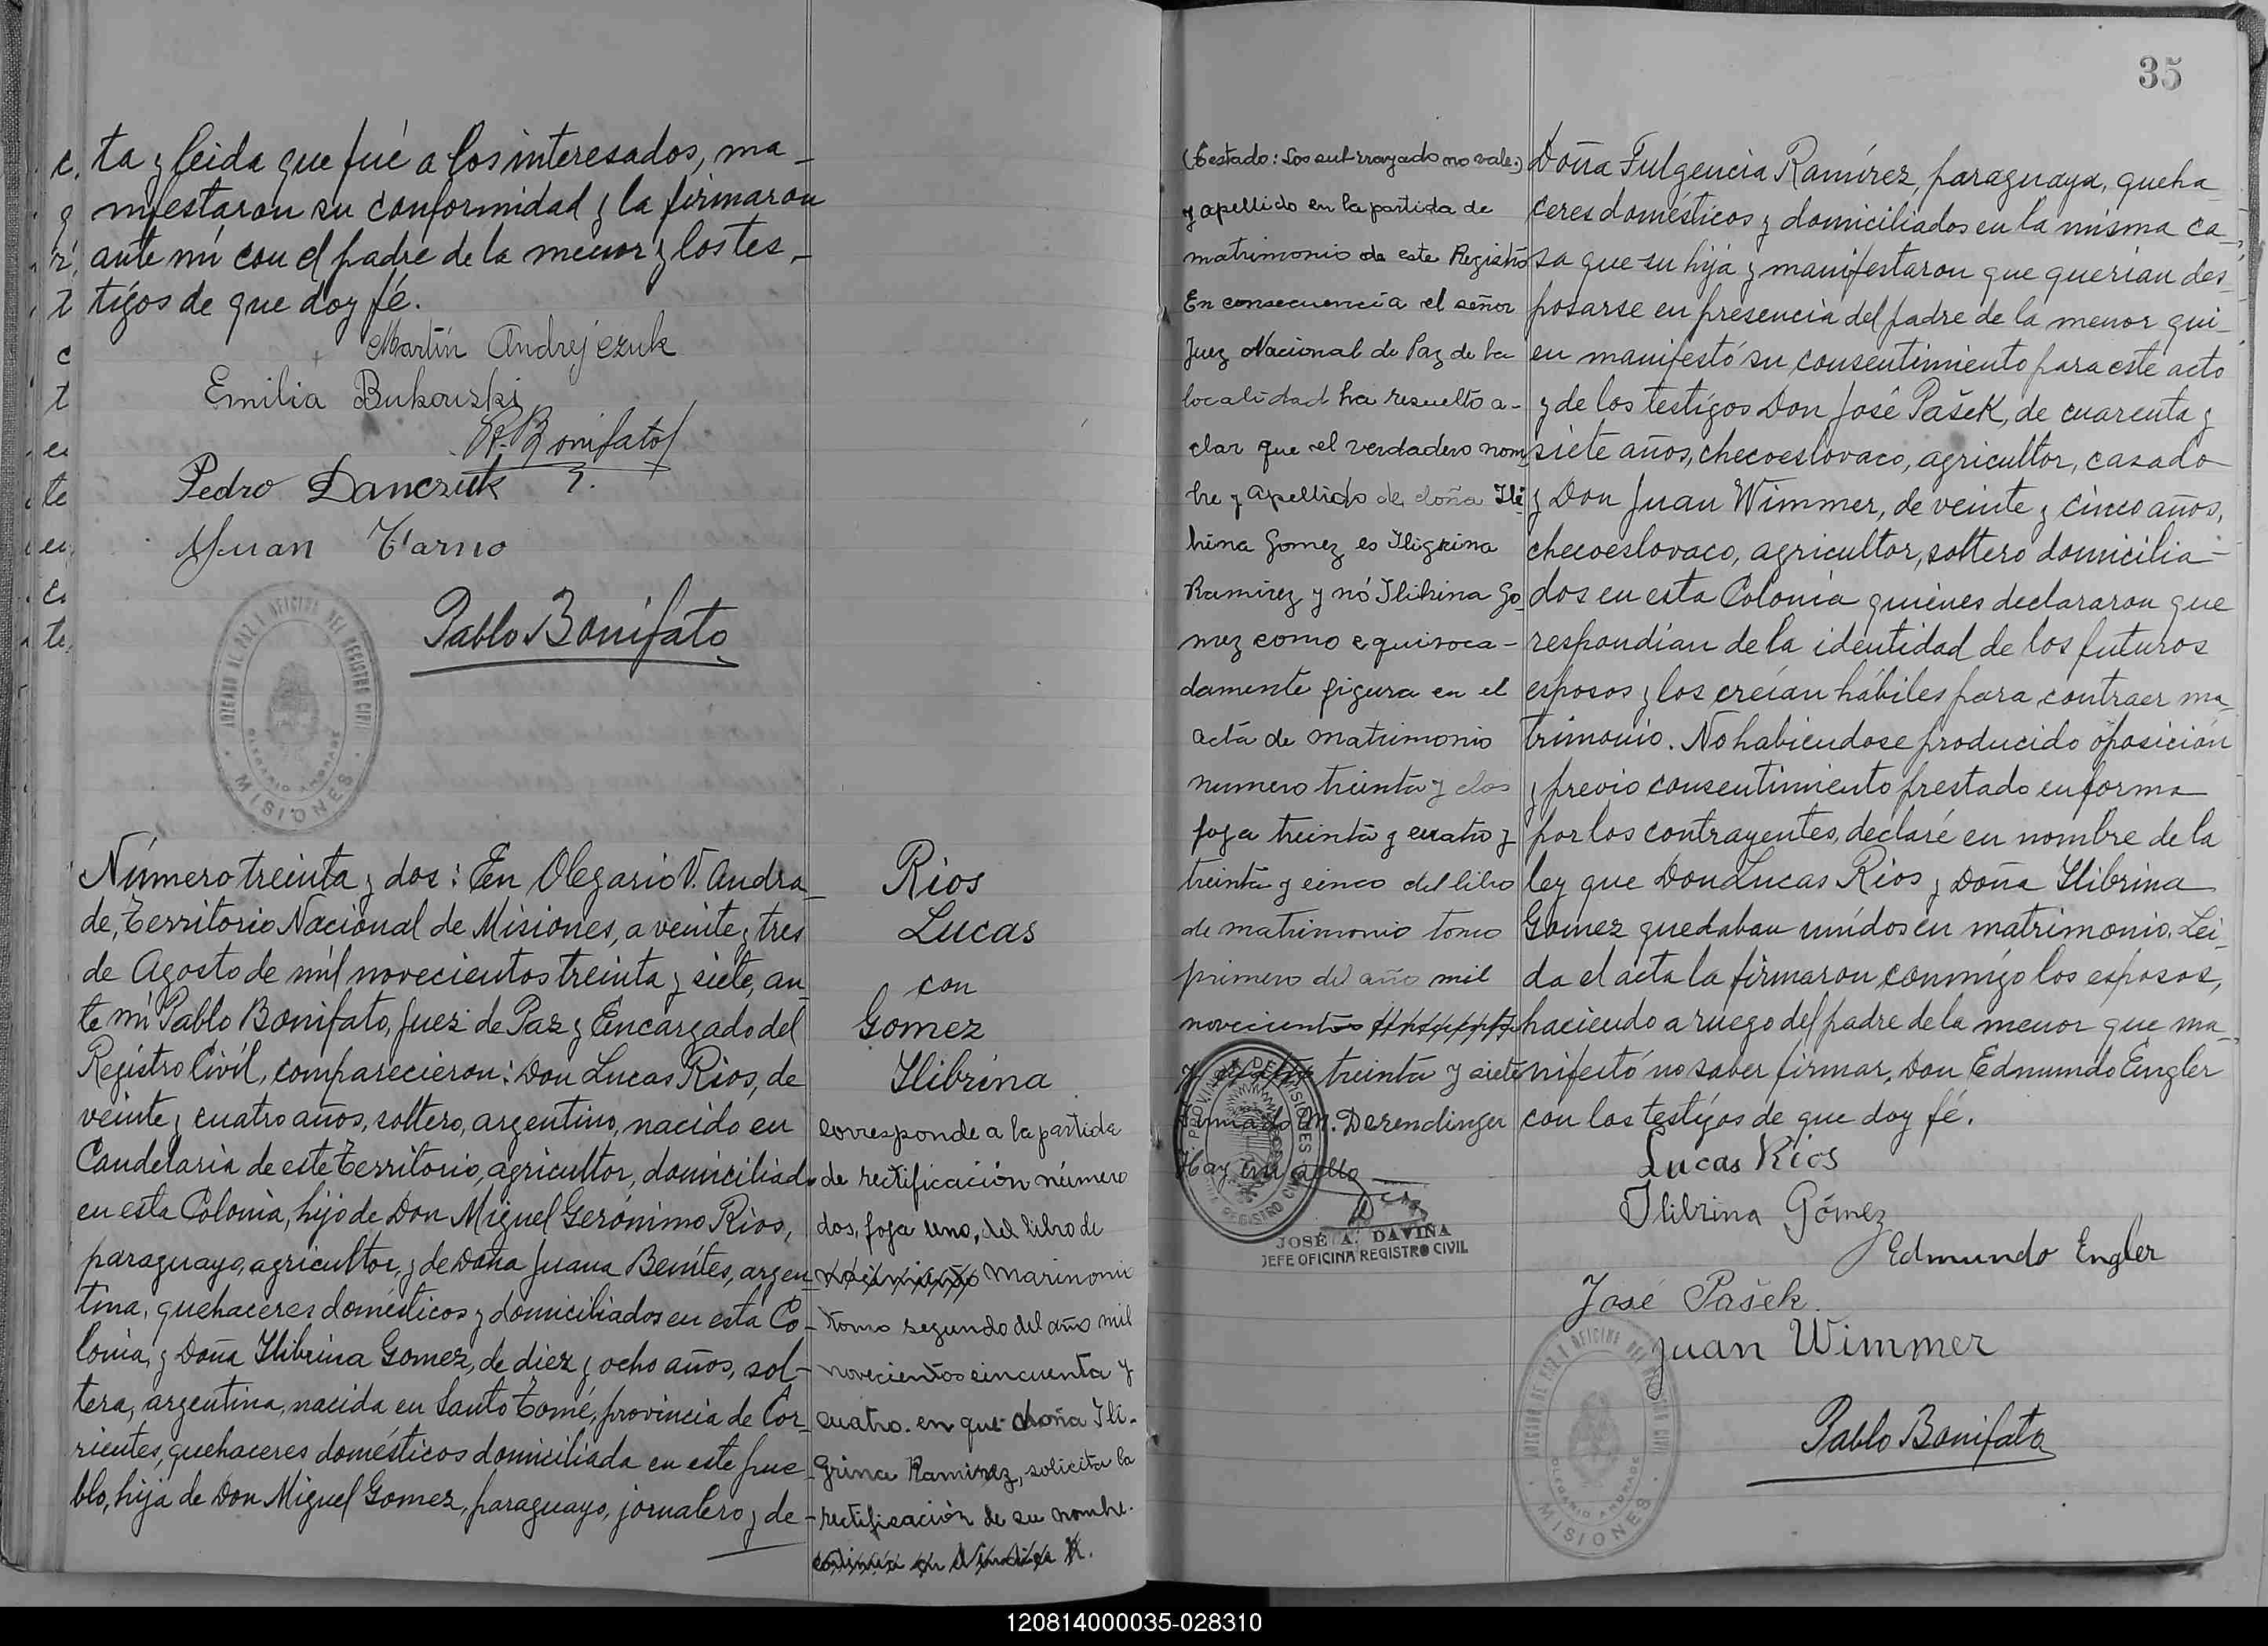 ta y leida que fué a los interesados, ma-
nifestaron su conformidad y la firmaron
ante mí con el padre de la menor y los tes-
tigos de que doy fé.
Martín Andrejczuk
Emilia Bukowski
P. Bonifato
Pedro Danczuk
Juan Tarno
JUZGADO DE PAZ Y OFICINA DEL REGISTRO CIVIL
OLEGARIO ANDRADE
MISIONES
Pablo Bonifato
Número treinta y dos: En Olegario V. Andra-
de, Territorio Nacional de Misiones, a veinte y tres
de Agosto de mil novecientos treinta y siete, an-
te mí Pablo Bonifato, Juez de Paz y Encargado del
Registro Civil, comparecieron: Don Lucas Rios, de
veinte y cuatro años, soltero, argentino, nacido en
Candelaria de este Territorio, agricultor, domiciliado
en esta Colonia, hijo de Don Miguel Gerónimo Rios,
paraguayo, agricultor, y de Doña Juana Benítes, argen-
tina, quehaceres domésticos y domiciliados en esta Co-
lonia, y Doña Ilibrina Gomez, de diez y ocho años, sol-
tera, argentina, nacida en Santo Tomé, provincia de Cor-
rientes, quehaceres domésticos domiciliada en este pue-
blo, hija de Don Miguel Gomez, paraguayo, jornalero y de
Rios
Lucas
con
Gomez
Ilibrina
corresponde a la partida
de rectificación número
dos, foja uno, del libro de
marinonio
tomo segundo del año mil
novecientos cincuenta y
cuatro. en que doña Ili-
grina Ramirez, solicita la
rectificación de su nombre.
35
(Testado: Los subrrayado no vale.)
y apellido en la partida de
matrimonio de este Registro
En consecuencia el señor
Juez Nacional de Paz de la
localidad ha resuelto a-
clar que el verdadero nom-
bre y apellido de doña Ili-
brina Gomez es Iligrina
Ramirez y nó Ilibrina Go-
mez como equivoca-
damente figura en el
acta de matrimonio
numero treinta y dos
foja treinta y cuatro y
treinta y cinco del libro
de matrimonio tomo
primero del año mil
novecientos
treinta y siete
Firmado M. Derendinger
Hay un sello
PROVINCIA DE MISIONES
REGISTRO CIVIL
JOSÉ A. DAVIÑA
JEFE OFICINA REGISTRO CIVIL
Doña Fulgencia Ramírez, paraguaya, queha-
ceres domésticos y domiciliados en la misma ca-
sa que su hija y manifestaron que querían des-
posarse en presencia del padre de la menor qui-
en manifestó su consentimiento para este acto
y de los testigos Don José Pašek, de cuarenta y
siete años, checoeslovaco, agricultor, casado
y Don Juan Wimmer, de veinte y cinco años,
checoeslovaco, agricultor, soltero domicilia-
dos en esta Colonia quiénes declararon que
respondían de la identidad de los futuros
esposos y los creían hábiles para contraer ma-
trimonio. No habiendose producido oposición
y previo consentimiento prestado en forma
por los contrayentes, declaré en nombre de la
ley que Don Lucas Rios y Doña Ilibrina
Gomez quedaban unídos en matrimonio. Lei-
da el acta la firmaron conmigo los esposos,
haciendo a ruego del padre de la menor que ma-
nifestó no saber firmar, Don Edmundo Engler
con los testigos de que doy fé.
Lucas Rios
Ilibrina Gómez
Edmundo Engler
José Pašek.
Juan Wimmer
JUZGADO DE PAZ Y OFICINA DEL REGISTRO CIVIL
OLEGARIO ANDRADE
MISIONES
Pablo Bonifato
120814000035-028310